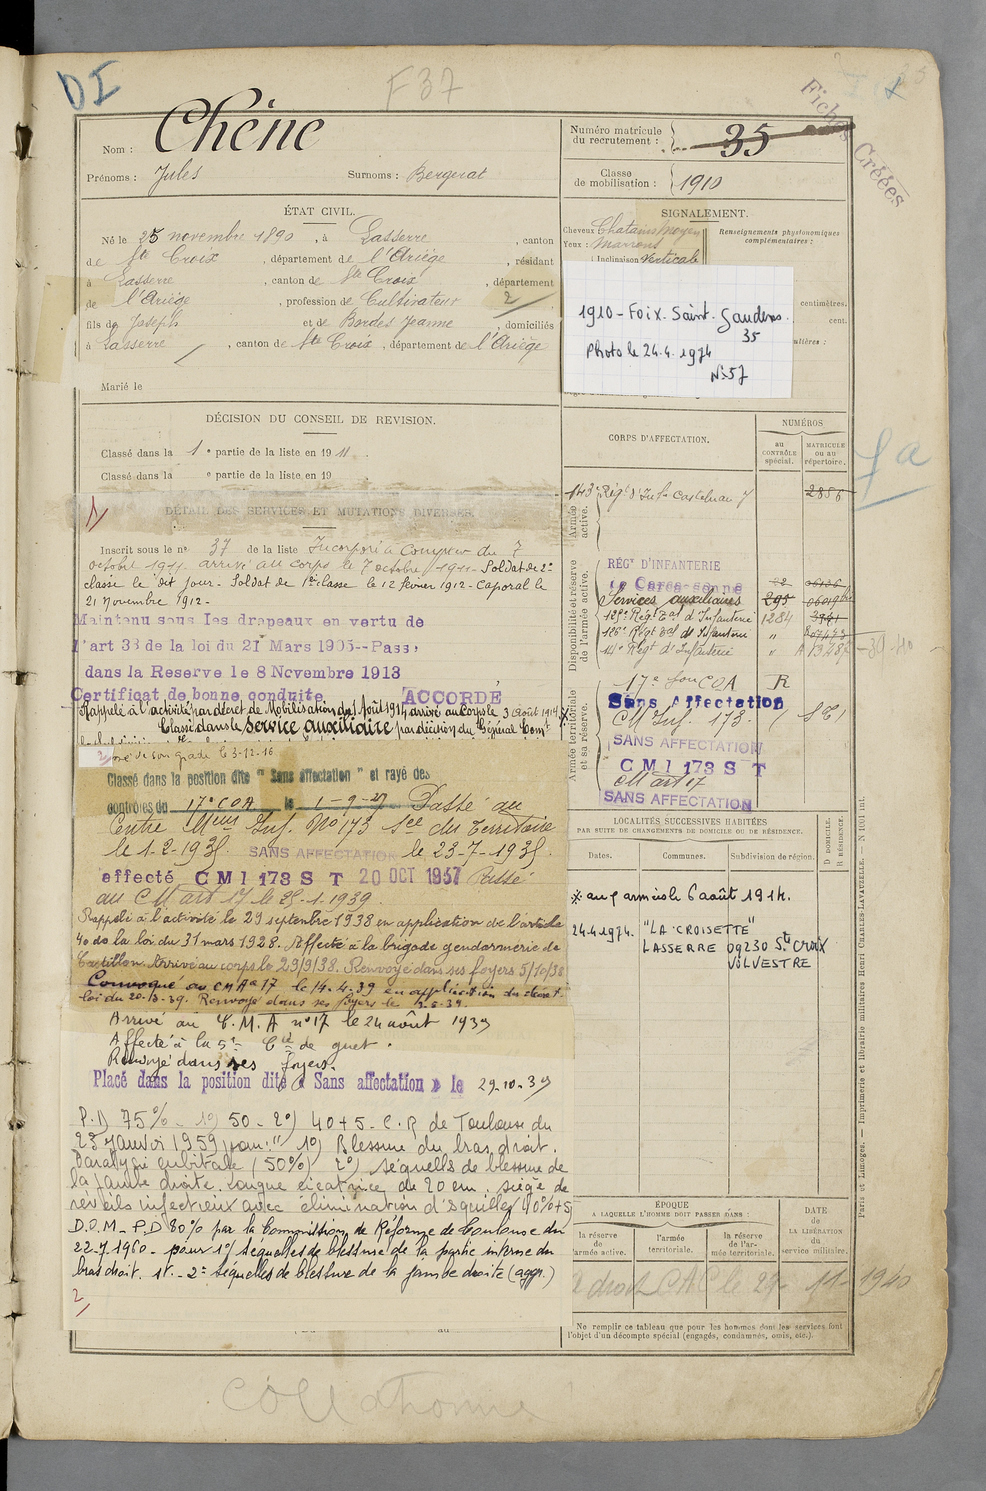 DI
F37
Fiches Créées
Nom : Chêne
Prénoms : Jules Surnoms : Bergnat
Numéro matricule du recrutement : 35
Classe de mobilisation : 1910
ÉTAT CIVIL.
Né le 25 novembre 1890, à Lasserre, canton
de Ste Croix, département de l'Ariège, résidant
à Lasserre, canton de Ste Croix, département
de l'Ariège, profession de Cultivateur 2/
fils de Joseph et de Bordes Jeanne, domiciliés
à Lasserre, canton de Ste Croix, département de l'Ariège
Marié le
SIGNALEMENT.
Cheveux Chatains moyen
Yeux : Marrons
Inclinaison verticale
Renseignements physionomiques complémentaires :
centimètres.
cent.
1910 - Foix. Saint. Gaudens.
35
Photo le 24.4.1974
N° 57
DÉCISION DU CONSEIL DE REVISION.
Classé dans la 1e partie de la liste en 1911.
Classé dans la e partie de la liste en 19
DÉTAIL DES SERVICES ET MUTATIONS DIVERSES.
1/
Inscrit sous le n° 37 de la liste Incorporé à Compter du 7
octobre 1911. arrivé au corps le 7 octobre 1911. Soldat de 2e
classe le dit jour. Soldat de 1ère classe le 12 février 1912 - Caporal le
21 Novembre 1912 -
Maintenu sous les drapeaux en vertu de
l'art 33 de la loi du 21 Mars 1905--Passé
dans la Reserve le 8 Novembre 1913
Certificat de bonne conduite ACCORDÉ
Rappelé à l'activité par décret de Mobilisation du 1 Août 1914 arrivé au Corps le 3 Août 1914 ※
Classé dans le service auxiliaire par décision du Général Comt
2/ de son grade le 3-12-16
Classé dans la position dite " Sans affectation " et rayé des
contrôles du 17e COA le 1-9-27 Passé au
Centre Mem Inf. No 173 Sce du Territoire
le 1-2-1935. SANS AFFECTATION le 23-7-1935.
affecté CMI 173 S T 20 OCT 1937 Passé
au CM art 17 le 25.1.1939.
Rappelé à l'activité le 29 septembre 1938 en application de l'article
40 de la loi du 31 mars 1928. Affecté à la brigade gendarmerie de
Castillon. Arrivé au corps le 29/9/38. Renvoyé dans ses foyers 5/10/38
Convoqué au CMA 17 le 14-4-39 en application du décret
loi du 20-3-39. Renvoyé dans ses foyers le
Arrivé au C.M.A n° 17 le 24 août 1939
Affecté à la 5e Cie de guet.
Renvoyé dans ses foyers.
Placé dans la position dite « Sans affectation » le 29-10-39
P.D 75% - 1°) 50 - 2°) 40+5 - C.R de Toulouse du
23 Janvier 1959 pour " 1°) Blessure du bras droit.
Paralysie cubitale (50%) 2°) séquelles de blessure de
la jambe droite. Longue cicatrice de 20 cm. siège de
réveils infectieux avec élimination d'esquilles 40%+5
D.O.M - P.D 80% par la Commission de Réforme de Toulouse du
22-7-1960 - pour 1°) Séquelles de blessure de la partie interne du
bras droit. st. - 2° Séquelles de blessure de la jambe droite (aggr.)
2/
CORPS D'AFFECTATION.
NUMÉROS
au CONTRÔLE spécial.
MATRICULE ou au répertoire.
Armée active.
143e Régt d'Infie Castelnau 7 2856
Disponibilité et réserve de l'armée active.
RÉGt D'INFANTERIE
de Carcassonne
Services auxiliaires 295
125e Régt Eal d'Infanterie 1284
126e Régt Eal d'Infanterie "
14e Régt d'Infanterie " A 13487
Armée territoriale et sa réserve.
17e Son COA R
Sans Affectation
CM Inf. 173. (SC)
SANS AFFECTATION
CMI 173 S T
CM art 17
SANS AFFECTATION
LOCALITÉS SUCCESSIVES HABITÉES
PAR SUITE DE CHANGEMENTS DE DOMICILE OU DE RÉSIDENCE.
Dates. Communes. Subdivision de région. D. DOMICILE. R. RÉSIDENCE.
※ aux armées le 6 août 1914.
24.4.1974. "LA CROISETTE"
LASSERRE 09230 Ste Croix
VOLVESTRE
ÉPOQUE
A LAQUELLE L'HOMME DOIT PASSER DANS :
la réserve de l'armée active.
l'armée territoriale.
la réserve de l'armée territoriale.
DATE de LA LIBÉRATION du service militaire.
CAC le 29- 11- 1940
Ne remplir ce tableau que pour les hommes dont les services font
l'objet d'un décompte spécial (engagés, condamnés, omis, etc.).
Paris et Limoges. — Imprimerie et librairie militaires Henri CHARLES-LAVAUZELLE. — N° 1001 int.